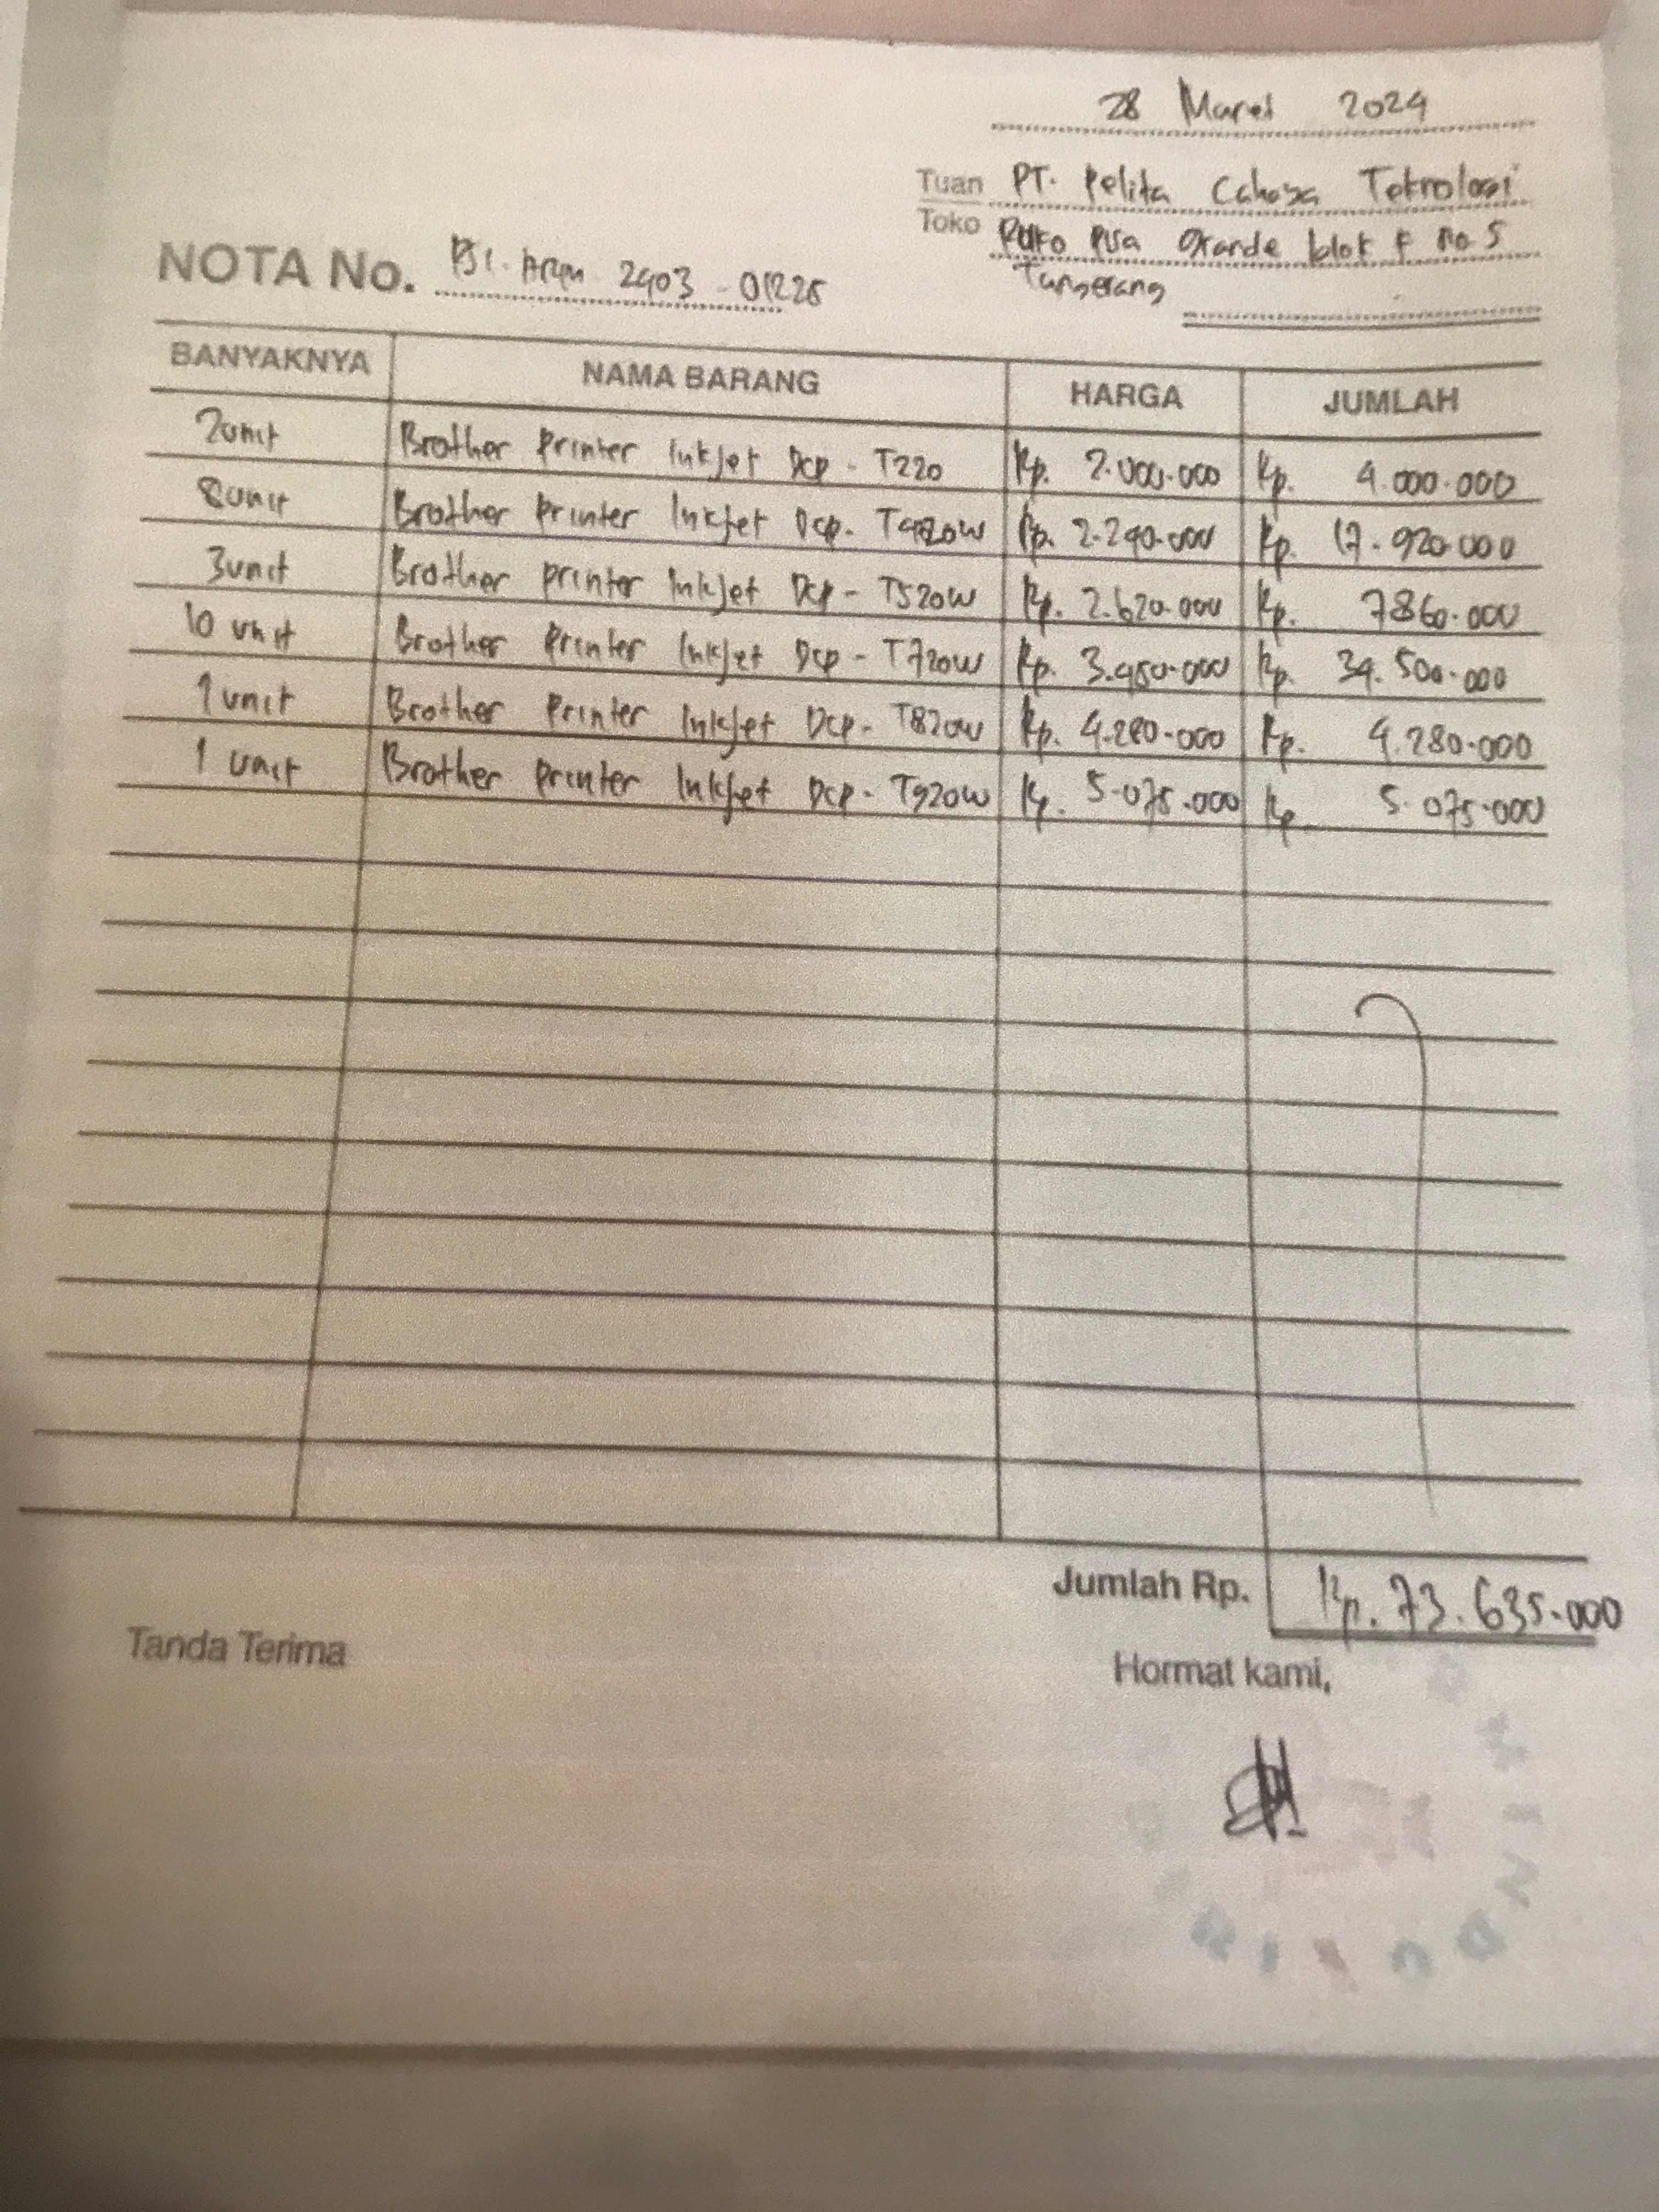 28 Maret 2024
Tuan PT. Pelita Cahaya Teknologi
Toko Ruko Pisa Grande blok F no 5
Tangerang
NOTA No. 2403 - 01226
BANYAKNYA NAMA BARANG HARGA JUMLAH
2unit Brother Printer InkJet Dcp - T220 Rp. 2.000.000 Rp. 4.000.000
8unit Brother Printer InkJet Dcp. T420W Rp. 2.240.000 Rp. 17.920.000
3unit Brother printer InkJet Dcp - T520W Rp. 2.620.000 Rp. 7860.000
10 unit Brother Printer InkJet Dcp - T720W Rp. 3.450.000 Rp. 34.500.000
1 unit Brother Printer InkJet Dcp - T820W Rp. 4.280.000 Rp. 4.280.000
1 unit Brother Printer InkJet Dcp - T920W Rp. 5.075.000 Rp. 5.075.000
Jumlah Rp. Rp. 73.635.000
Tanda Terima Hormat kami,